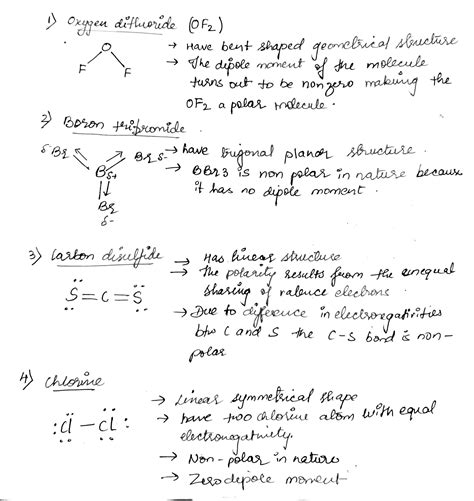 1) Oxygen difluoride (OF2)
O
F F
→ Have bent shaped geometrical structure
→ The dipole moment of the molecule
turns out to be non zero making the
OF2 a polar molecule.
2) Boron tribromide.
δ- Br Br δ-
B δ+
Br
δ-
→ have trigonal planar structure.
→ BBr3 is non polar in nature because
it has no dipole moment.
3) Carbon disulfide
S=C=S
→ Has linear structure
→ The polarity results from the unequal
sharing of valence electrons
→ Due to diference in electronegativities
btw C and S the C-S bond is non-
polar
4) Chlorine
:Cl-Cl:
→ Linear symmetrical shape
→ have two chlorine atom with equal
electronegativity.
→ Non-polar in nature
→ Zero dipole moment